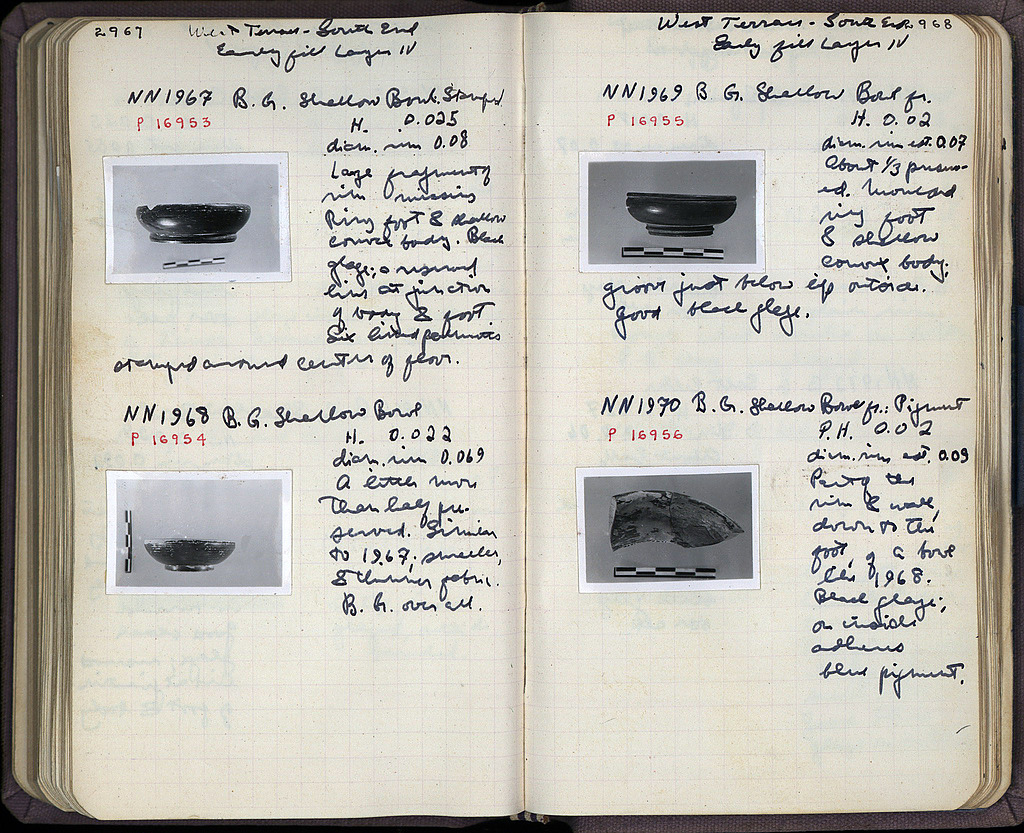 2967 West Terrass - South End
Early fill Layer IV
NN1967 B. G. Shallow Bowl. Stamped
P 16953
H. 0.025
diam. rim 0.08
Large fragment of
rim missing
Ring foot & shallow
convex body. Black
glaze; a reserved
line at junction
of body & foot
Six linked palmettes
stamped around center of floor.
NN1968 B. G. Shallow Bowl
P 16954
H. 0.022
diam. rim 0.069
A little more
than half pre-
served. Similar
to 1967, smaller,
& thinner fabric.
B. G. over all.
West Terrass - South End 2968
Early fill Layer IV
NN1969 B G. Shallow Bowl fr.
P 16955
H. 0.02
diam. rim est. 0.07
About 1/3 preserv-
ed. Moulded
ring foot
& shallow
convex body;
groove just below lip outside.
Good black glaze.
NN1970 B. G. Shallow Bowl fr.: Pigment
P 16956
P.H. 0.02
diam. rim est. 0.09
Part of the
rim & wall,
down to the
foot, of a bowl
like 1968.
Black glaze;
on inside
adheres
blue pigment.